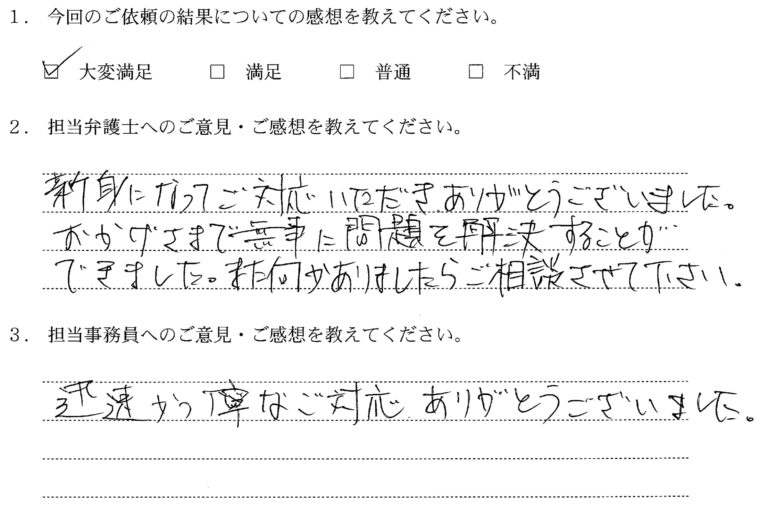 1．今回のご依頼の結果についての感想を教えてください。
☑ 大変満足 □ 満足 □ 普通 □ 不満
2．担当弁護士へのご意見・ご感想を教えてください。
親身になってご対応いただき、ありがとうございました。
おかげさまで無事に問題を解決することが
できました。また何かありましたらご相談させて下さい。
3．担当事務員へのご意見・ご感想を教えてください。
迅速かつ丁寧なご対応、ありがとうございました。